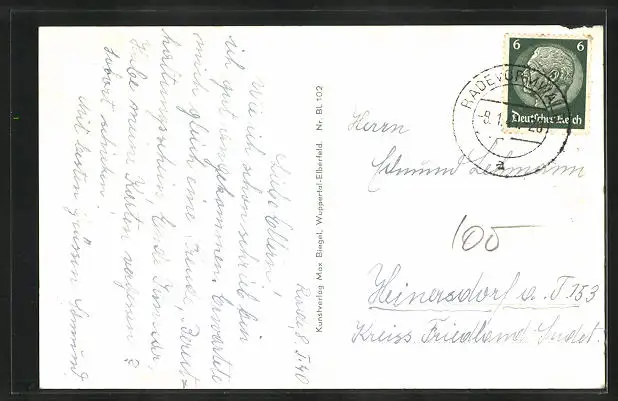 Rade, 8. I. 40
Liebe Eltern!
Wie ich schon schrieb bin
ich gut angekommen. Erwartete
mich gleich eine Freude,
Habe meine Karten vergessen?
sofort schicken.
Mit besten Grüssen
Kunstverlag Max Biegel, Wuppertal-Elberfeld. Nr. BL 102
6 6
Deutsches Reich
RADEVORMWALD
-8.1.
a
Herrn
Edmund Lehmann
105
Heinersdorf a. T. 153
Kreiss Friedland Sudet.